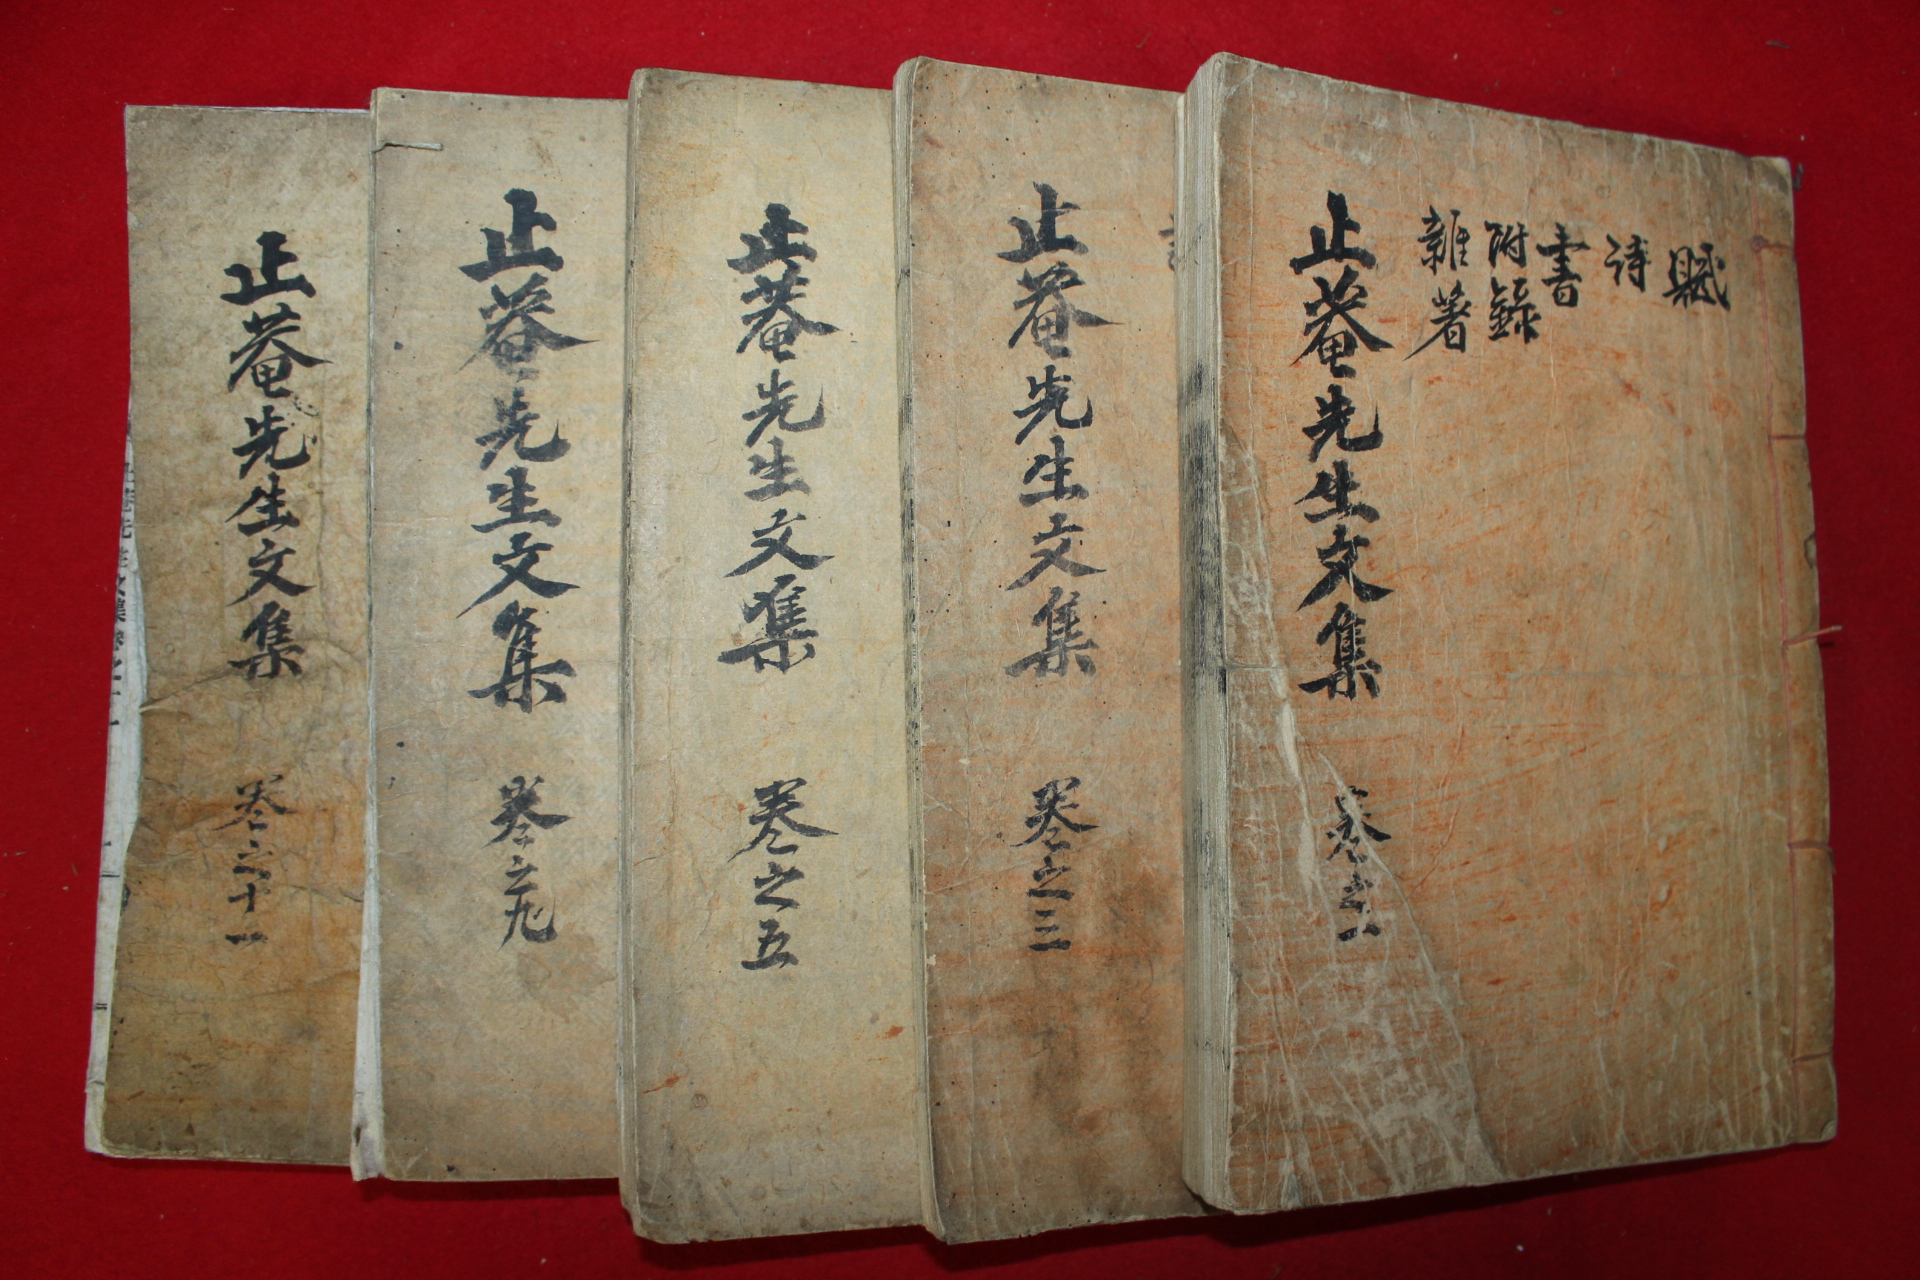 賦
詩
書
附錄
雜著
止菴先生文集 卷之一
止菴先生文集 卷之三
止菴先生文集 卷之五
止菴先生文集 卷之九
止菴先生文集 卷之十一